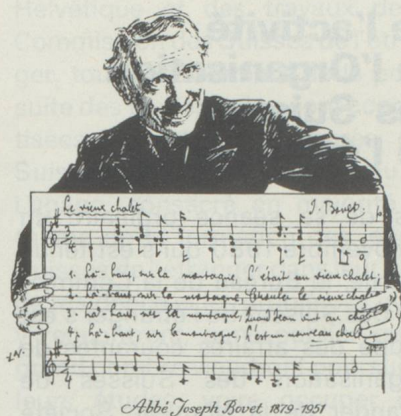 Le vieux chalet J. Bovet
3
4
1. Là-haut, sur la montagne, l'était un vieux chalet;
2. Là-haut, sur la montagne, Croula le vieux chalet
3. Là-haut, sur la montagne, Quand Jean vint au chalet
4. Là-haut, sur la montagne, L'est un nouveau chalet
3
4
Abbé Joseph Bovet 1879-1951